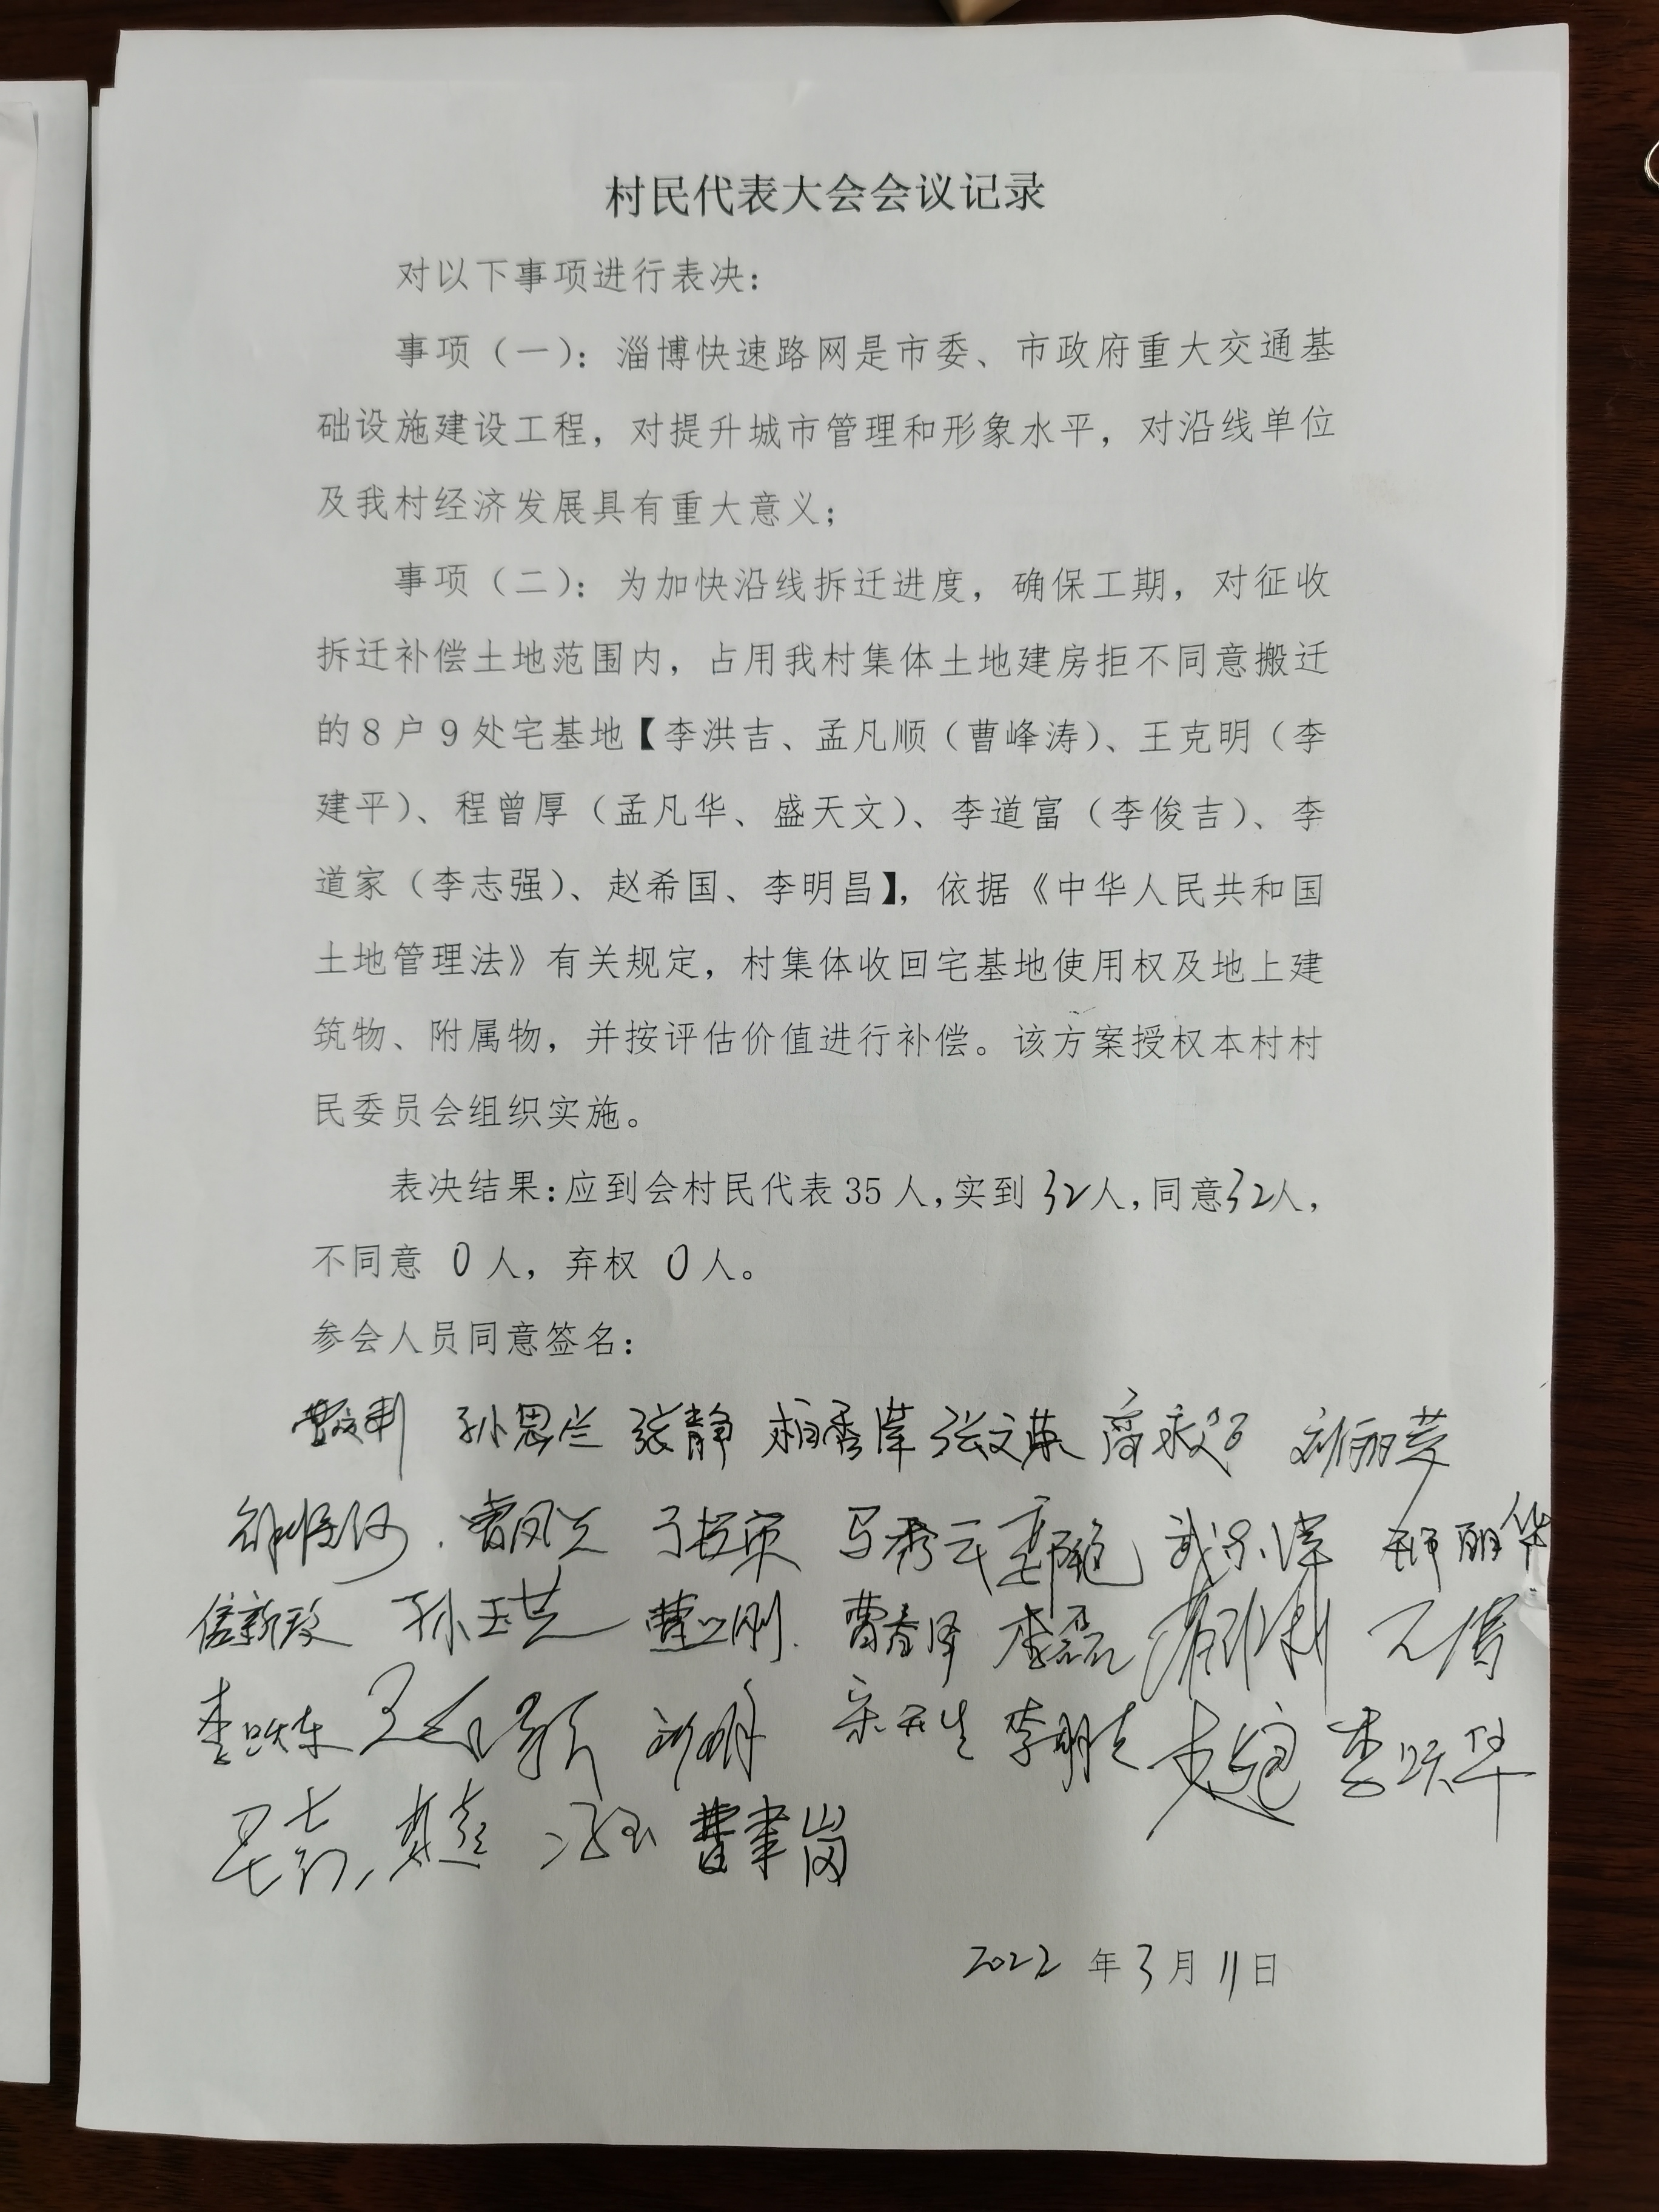 村民代表大会会议记录
对以下事项进行表决：
事项（一）：淄博快速路网是市委、市政府重大交通基
础设施建设工程，对提升城市管理和形象水平，对沿线单位
及我村经济发展具有重大意义；
事项（二）：为加快沿线拆迁进度，确保工期，对征收
拆迁补偿土地范围内，占用我村集体土地建房拒不同意搬迁
的8户9处宅基地【李洪吉、孟凡顺（曹峰涛）、王克明（李
建平）、程曾厚（孟凡华、盛天文）、李道富（李俊吉）、李
道家（李志强）、赵希国、李明昌】，依据《中华人民共和国
土地管理法》有关规定，村集体收回宅基地使用权及地上建
筑物、附属物，并按评估价值进行补偿。该方案授权本村村
民委员会组织实施。
表决结果：应到会村民代表35人，实到32人，同意32人，
不同意 0人，弃权 0人。
参会人员同意签名：
孙思兰 张静 张文英
曹凤兰 马秀云
孙玉芸 曹春泽 李磊
李跃东 李跃华
2022年3月11日